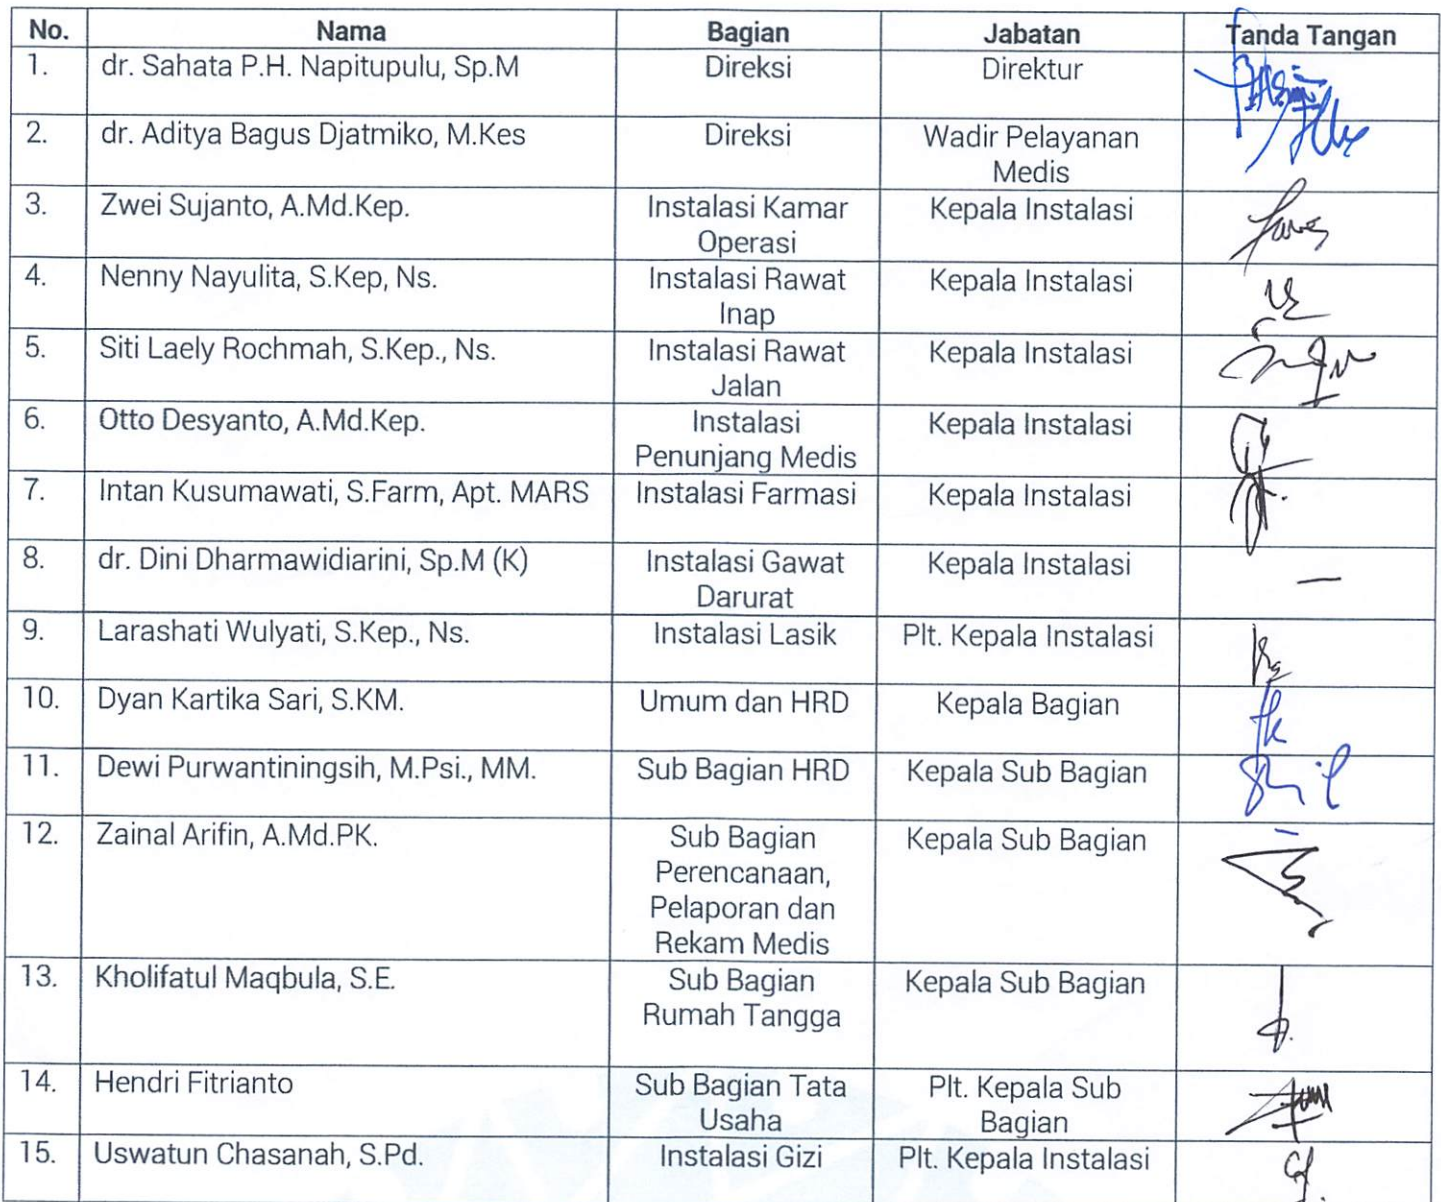 No. Nama Bagian Jabatan Tanda Tangan
1. dr. Sahata P.H. Napitupulu, Sp.M Direksi Direktur
2. dr. Aditya Bagus Djatmiko, M.Kes Direksi Wadir Pelayanan
Medis
3. Zwei Sujanto, A.Md.Kep. Instalasi Kamar Kepala Instalasi
Operasi
4. Nenny Nayulita, S.Kep, Ns. Instalasi Rawat Kepala Instalasi
Inap
5. Siti Laely Rochmah, S.Kep., Ns. Instalasi Rawat Kepala Instalasi
Jalan
6. Otto Desyanto, A.Md.Kep. Instalasi Kepala Instalasi
Penunjang Medis
7. Intan Kusumawati, S.Farm, Apt. MARS Instalasi Farmasi Kepala Instalasi
8. dr. Dini Dharmawidiarini, Sp.M (K) Instalasi Gawat Kepala Instalasi —
Darurat
9. Larashati Wulyati, S.Kep., Ns. Instalasi Lasik Plt. Kepala Instalasi
10. Dyan Kartika Sari, S.KM. Umum dan HRD Kepala Bagian
11. Dewi Purwantiningsih, M.Psi., MM. Sub Bagian HRD Kepala Sub Bagian
12. Zainal Arifin, A.Md.PK. Sub Bagian Kepala Sub Bagian
Perencanaan,
Pelaporan dan
Rekam Medis
13. Kholifatul Maqbula, S.E. Sub Bagian Kepala Sub Bagian
Rumah Tangga
14. Hendri Fitrianto Sub Bagian Tata Plt. Kepala Sub
Usaha Bagian
15. Uswatun Chasanah, S.Pd. Instalasi Gizi Plt. Kepala Instalasi